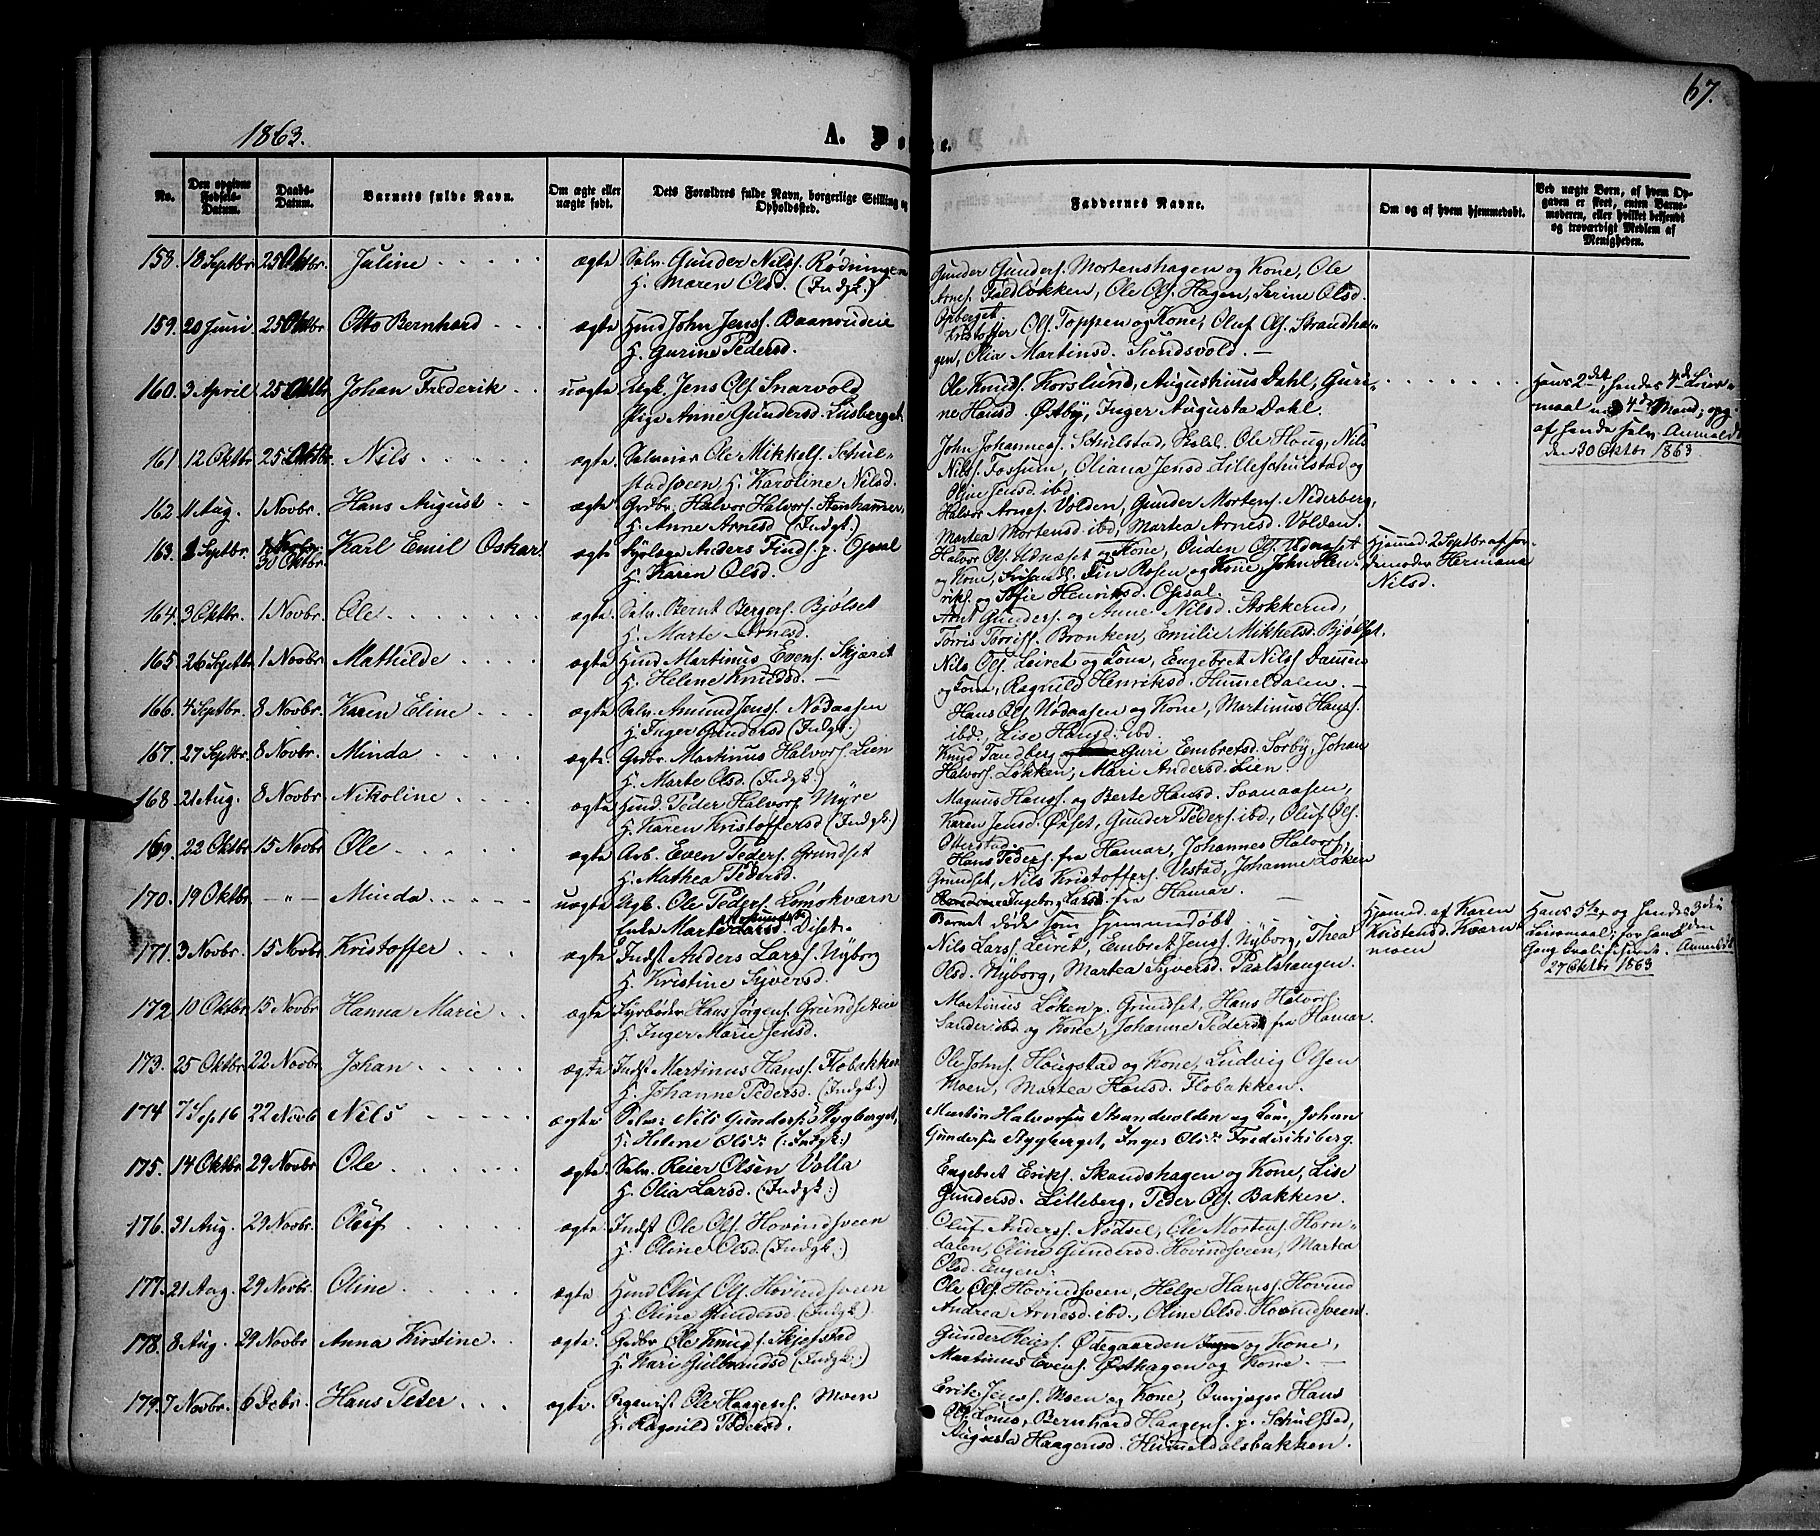 67.
1863.
A. D
e.
No.
Den opgivne Fødsels-Datum.
Daabs-Datum.
Barnets fulde Navn.
Om ægte eller uægte født.
Dets Forældres fulde Navn, borgerlige Stilling og Opholdssted.
Faddernes Navne.
Om og af hvem hjemmedøbt.
Ved uægte Børn, af hvem Opgaven er skeet, enten Barnemoderen, eller hvilket bekjendt og troværdigt Medlem af Menigheden.
158. 18 Septbr. 25 Oktbr. Juline ægte Selv. Gunder Nilss. Rødningen
H. Maren Olsd. (Indgk.)
Gunder Gunders. Mortenshagen og Kone, Ole
Arnes. Foldløkken, Ole Ols. Hagen, Serine Olsd.
Opberget
159. 20 Juni 25 Oktbr. Otto Bernhard ægte Husd John Jenss. Baanrudeie
H. Gurine Pedersd.
Kristoffer Ols. Toppen og Kone, Oluf Ols. Strandha-
gen, Olia Martinsd. Sundsvold.
160. 3 April 25 Oktbr. Johan Frederik uægte Ugk. Jens Ols. Snarvold
Pige Anne Gundersd. Lusberget
Ole Knuds. Korslund, Augustinus Dahl, Guri-
ne Hansd. Østby, Inger Augusta Dahl.
Hans 2det hendes 4de Leier-
maal med 4de Mand; opg.
af hende selv. Anmeldt
den 30 Oktbr 1863
161. 12 Oktbr. 25 Oktbr. Nils ægte Selveier Ole Mikkels. Schul-
stadsveen, H. Karoline Nilsd.
John Johanness. Schulstad, Skoll. Ole Houg, Nils
Nilss. Fossum, Oliana Jensd. Lilleschulstad og
Oline Jensd. ibd.
162. 11 Aug. 1 Novbr. Hans August ægte Grdbr. Halvor Halvors. Stenhammer,
H. Anne Arnesd (Indgk.)
Halvor Arnes. Volden, Gunder Mortens. Nederberg,
Martea Mortensd. ibd., Martea Arnesd. Volden.
163. 2 Septbr. 30 Oktbr. Karl Emil Oskar ægte Dyrlæge Anders Finds. p. Opsal
H. Karen Olsd.
Halvor Ols. Udnæset og Kone, Ouden Ols. Udnæset
og Kone, Fin Rosen og Kone, John Hen-
riks. og Sofie Henriksd. Opsal.
Hjemmed. 2 Septbr. af Jor-
demoder Hermana
Nilsd.
164. 3 Oktbr. 1 Novbr. Ole ægte Selv. Bernt Bergers. Bjølset
H. Marte Arnesd.
Arnt Gunders. og Anne Nilsd. Stokkerud,
Tørris Tørriss. Bronken, Emilie Mikkelsd. Bjølset.
165. 26 Septbr. 1 Novbr. Mathilde ægte Husd Martinus Evens. Skjæret
H. Helene Knudsd.
Nils Ols. Leiret og Kone, Engebret Nilss. Dammen
og Kone, Ragnild Henriksd. Hummeldalen.
166. 4 Septbr. 8 Novbr. Karen Eline ægte Selv. Amund Jenss. Nødaasen
H. Inger Gundersd (Indgk.)
Hans Ols. Nødaasen og Kone, Martinus Hanss.
ibd., Lise Hansd. ibd.
167. 27 Septbr. 8 Novbr. Minda ægte Grdbr. Martinus Halvors. Lien
H. Marte Olsd. (Indgk.)
Knud Tandberg Guri Embretsd. Sorby, Johan
Halvors. Løkken, Mari Andersd. Lien.
168. 21 Aug. 8 Novbr. Nikoline ægte Husd. Peder Halvors. Myre
H. Karen Kristoffersd (Indgk.)
Magnus Hanss. og Berte Hansd. Svenaasen,
Karen Jensd. Øxset, Gunder Peders. ibd., Oluf Ols.
Otterstad.
169. 22 Oktbr. 15 Novbr. Ole ægte Arb. Even Peders. Grundset
H. Mathea Pedersd.
Hans Peders. fra Hamar, Johannes Halvors.
Grundset, Nils Kristoffers. Vestad, Johanne Løken
Ingeborg Larsd. fra Hamar.
170. 19 Oktbr. —"— Minda uægte Ugk. Ole Peders. Lømokværn
Enke Marte Larsd. Diset.
Barnet døde som hjemmedøbt
Hjemed. af Karen
Kristensd. Kværn-
moen
Hans 5te og hendes 3die
Leiermaal; for hende den
Gang kvalificeret. Anmeldt
27 Oktbr 1863
171. 3 Novbr. 15 Novbr. Kristoffer ægte Indst Anders Larss. Nyborg
H. Kristine Syversd.
Nils Larss. Leiret, Embret Jenss. Nyborg, Thea
Olsd. Nyborg, Martea Syversd. Paalshaugen.
172 10 Oktbr. 15 Novbr. Hanna Marie ægte Fyrbøder Hans Jørgens. Grundseteie
H. Inger Marie Jensd.
Martinus Løken p. Grundset, Hans Halvors.
Sander ibd. og Kone, Johanne Pedersd. fra Hamar.
173. 25 Oktbr. 22 Novbr. Johan ægte Indst Martinus Hanss. Flobakken
H. Johanne Pedersd. (Indgk.)
Ole Johns. Hougstad og Kone, Ludvig Olsen
Moen, Martea Hansd. Flobakken.
174 7 Sep 22 Novb Nils ægte Selv: Nils Gunders: Stygberget,
H. Helene Ols: (Indgk.)
Martin Halvorsen Strandvolden og Kone, Johan
Gundersen Stygberget, Inger Ols: Frederiksberg.
175. 14 Oktbr. 29 Novbr. Ole ægte Selv. Reier Olsen Volla
H. Olia Larsd. (Indgk.)
Engebret Eriks. Skandshagen og Kone, Lise
Gundersd. Lilleberg, Peder Ols. Bakken.
176. 31 Aug. 29 Novbr. Oluf ægte Indst Ole Ols. Hovindsveen
H. Oline Olsd. (Indgk.)
Oluf Anders. Nødsel, Ole Mortens. Horn-
dalen, Oline Gundersd. Hovindsveen, Martea
Olsd. Engen.
177. 21 Aug. 29 Novbr. Oline ægte Husd Oluf Ols. Hovindsveen
H. Oline Gundersd (Indgk.)
Ole Ols. Hovindsveen, Helge Hanss. Hovind
Andrea Arnesd. ibd., Oline Olsd. Hovindsveen
178. 8 Aug. 29 Novbr. Anna Kirstine ægte Grdbr Ole Knuds. Skjefstad
H. Kari Gulbrandsd (Indgk.)
Gunder Reiers. Ødegaarden og Kone,
Martinus Evens. Østhagen og Kone.
179. 7 Novbr. 6 Debr. Hans Peder ægte Organist Ole Haagens. Moen
H. Ragnild Pedersd.
Erik Jenss. Moen og Kone, Hans
Ols. Bernhard Haagens. p. Schulstad,
Augusta Haagensd. Hummeldalsbakken.